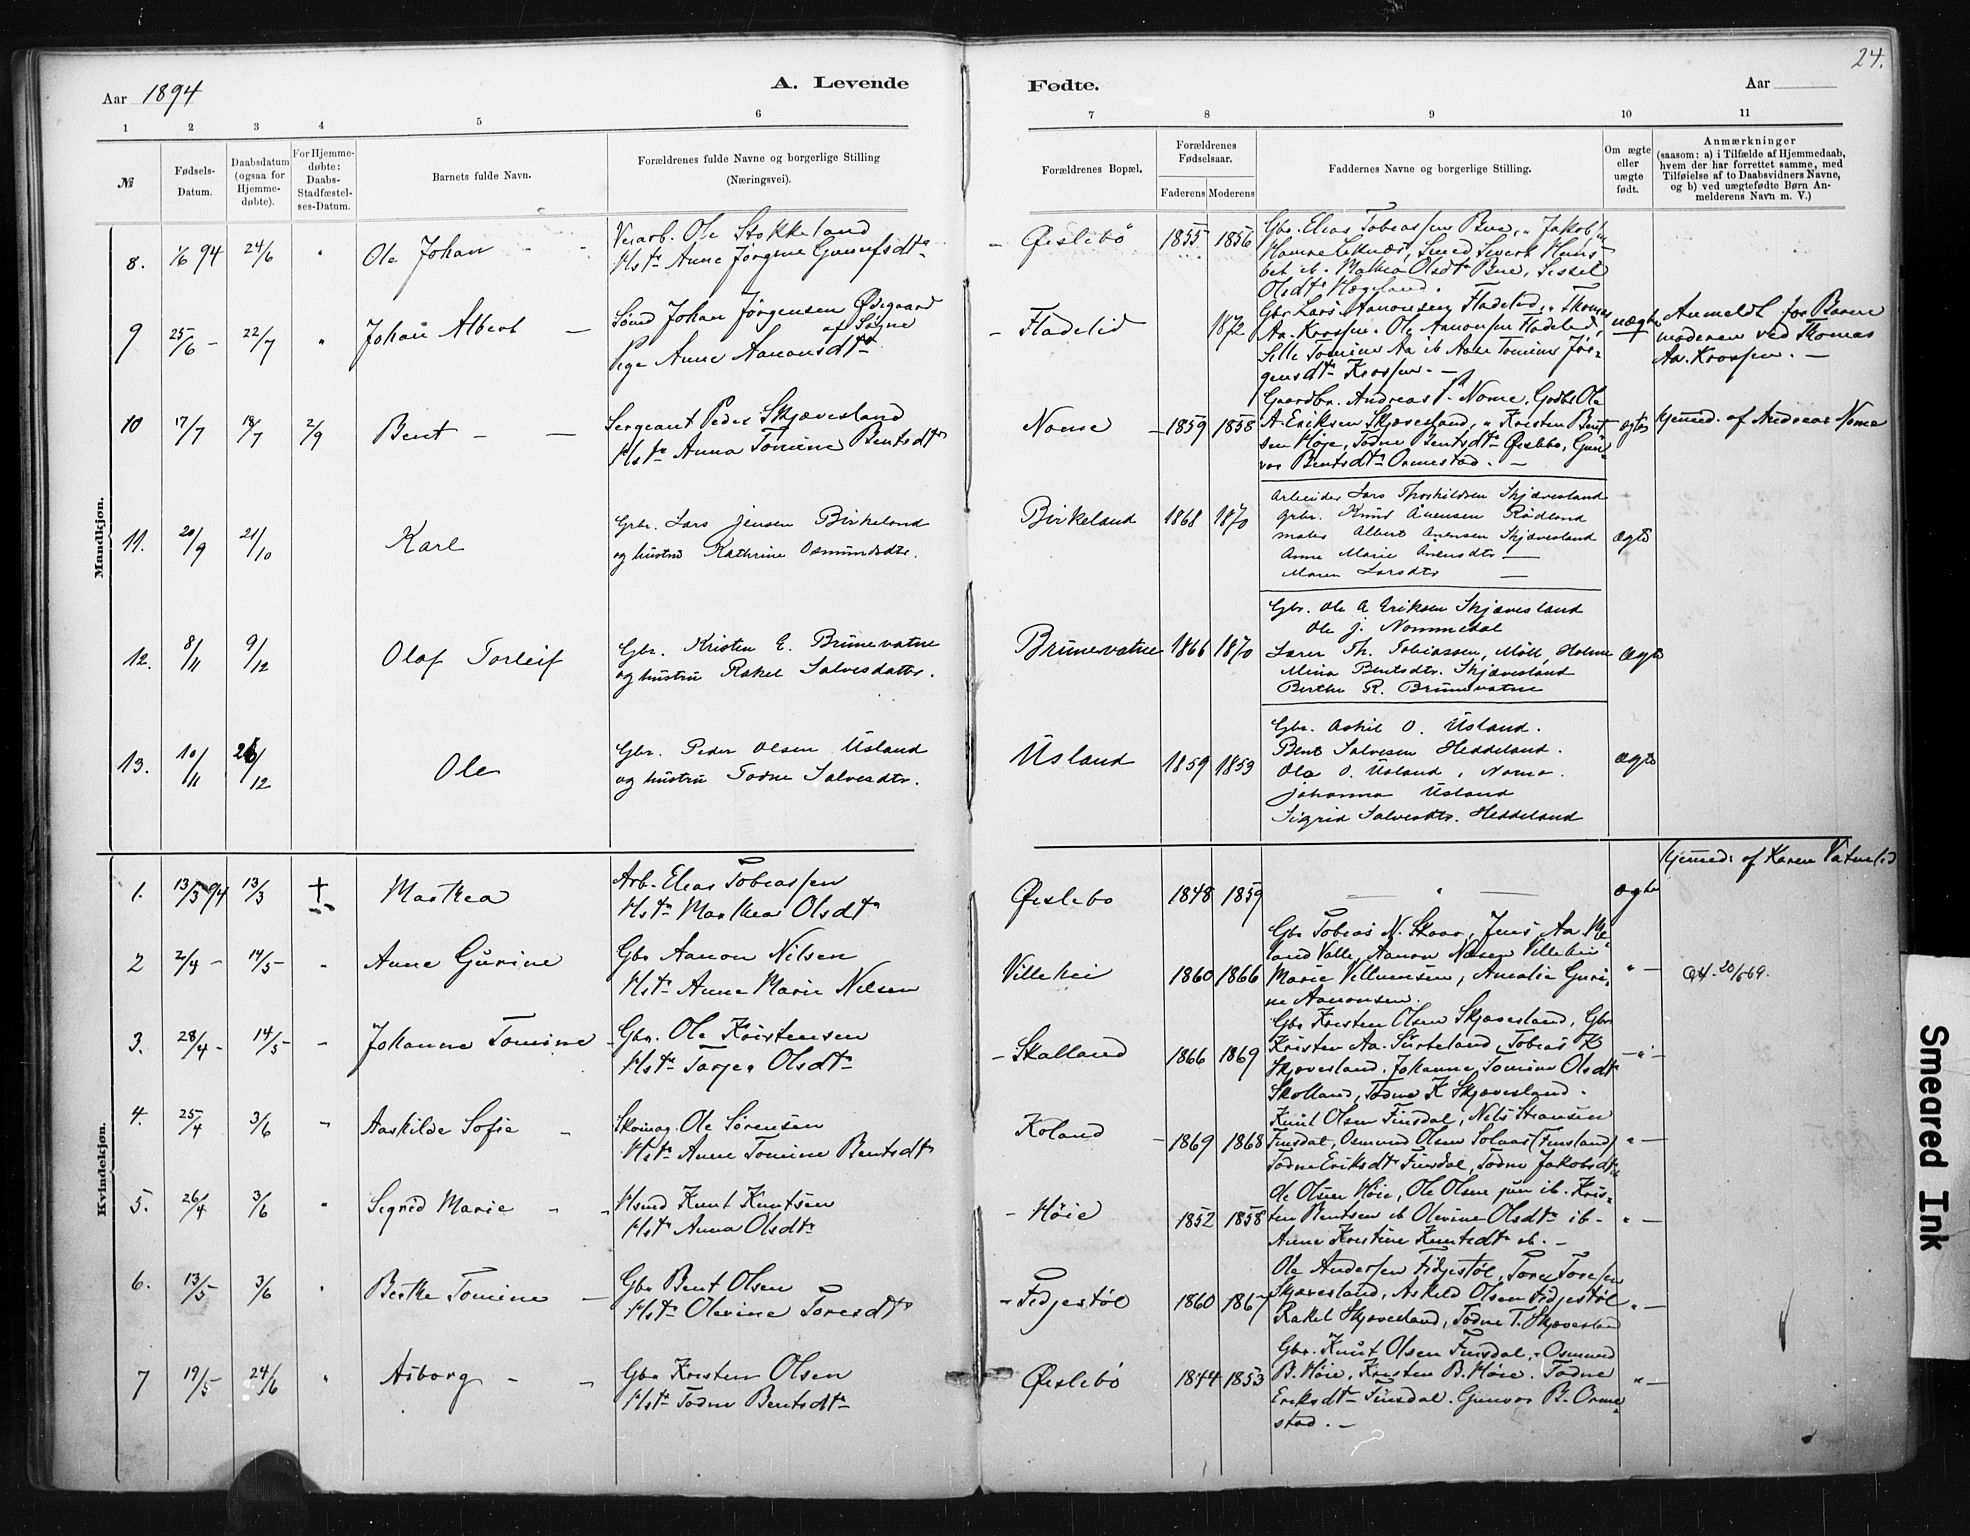 24.
Aar 1894 A. Levende Fødte. Aar
1 2 3 4 5 6 7 8 9 10 11
№ Fødsels-Datum. Daabsdatum (ogsaa for Hjemmedøbte). For Hjemmedøbte: Daabs-Stadfæstelses-Datum. Barnets fulde Navn. Forældrenes fulde Navne og borgerlige Stilling (Næringsvei). Forældrenes Bopæl. Forældrenes Fødselsaar. Faderens Moderens Faddernes Navne og borgerlige Stilling. Om ægte eller uægte født. Anmærkninger (saasom: a) i Tilfælde af Hjemmedaab, hvem der har forrettet samme, med Tilføielse af to Daabsvidners Navne, og b) ved uægtefødte Børn Anmelderens Navn m. V.)
Mandkjøn.
8. 1/6 94 24/6 " Ole Johan
Ole Stokkeland
Hst. Anne Jørgine
Øislebö 1855 1856
Gbr. Elias Tobiassen Bue, " Jakob
Smed Sivert
Mathea Olsdtr Bue, Sissel
Olsdtr Hægeland.
9 25/6 - 22/7 " Johan Albert
Johan Jörgensen Ödegaard
af Søgne
Pige Anne Aanonsdtr
Fladelid 1872
Gbr. Lars Aanonsen Fladelid, " Thomas
Aa. Krossen. Ole Aanonsen Fladelid,
Tomine Aa ib Aase Tomine Jör-
gensdtr Krossen. -
uægte
Anmeldt for Barne
moderen ved Thomas
Aa. Krossen. -
10 17/7 18/7 2/9 Bent
Sergeant Peder Skjævesland
Hst. Anna Tomine Bentsdtr
Nome 1859 1858
Gaardbr. Andreas P. Nome, Ole
A Eriksen Skjævesland, " Kristen Bent
sen Höje, Todne Bentsdtr Øislebö, Gun
vor Bentsdtr Ormestad. -
ægte
Hjemed. af Andreas Nome
11. 20/9 21/10 Karl
Grbr. Lars Jensen Birkeland
og hustru Kathrine Osmundsdtr.
Birkeland 1868 1870
Arbeider Lars Thorkildsen Skjævesland
Grbr. Knud Önensen Rödland
Albert Önensen Skjævesland
Anne Marie Önensdtr
Maren Larsdtr
ægte
12. 8/11 9/12 Olaf Torleif
Gbr. Kristen E. Brünevatne
og hustru Rakel Salvesdatter.
Brünevatne 1866 1870
Gbr. Ole A Eriksen Skjævesland
Ole J. Nommedal
Lærer Th. Tobiassen, Möll, Holme
Mina Bentsdtr. Skjævesland
Berthe R. Brünevatne
ægte
13. 10/11 26/12 Ole
Gbr. Peder Olsen Üsland
og hustru Todne Salvesdtr.
Üsland 1859 1853
Gbr. Askil O. Üsland.
Bent Salvesen Heddeland.
Ole O. Üsland, Nome.
Johanna Üsland
Sigrid Salvesdtr. Heddeland
ægte
Kvindekjøn.
1. 13/3 94 13/3 † Marthea
Arb. Elias Tobiassen
Hst. Marthea Olsdtr
Øislebo 1848 1859 " ægte
Hjemed. af Karen Vatnelid
2 2/4 - 14/5 - " Anne Gürine
Gbr Aanon Nilsen
Hst. Anne Marie Nilsen
Villehei 1860 1866
Gbr Tobias N. Skaar, Jens Aa
land Valle, Aanon Nilsen Villehei
Marie Villumsen, Amalie Guri,
ne Aanonsen.
" -
20/5 69.
3. 28/4 - 14/5 - " Johanne Tomine
Gbr. Ole Kristensen
Hst. Torjer Olsdtr
Skalland 1866 1869
Gbr Kristen Olsen Skjævesland, Gbr
Kristen Aa. Sürteland, Tobias K
Skjævesland. Johanne Tomine Olsdt
Skolland, Todne K Skjævesland.
- " -
4. 25/4 3/6 " Aaskilde Sofie
Skomag. Ole Sörensen
Hst. Anne Tomine Bentsdtr
Koland 1869 1868
Knut Olsen Finsdal, Nils Hansen
Finsdal, Osmund Olsen Solaas (Finsland)
Todne Eriksdtr Finsdal, Todne Jakobsdt
" -
5. 26/4 3/6 " Sigrid Marie
Hsmd Knut Knutsen
Hst. Anna Olsdtr
Höie 1852 1858
Ole Olsen Höie, Ole Olsen jun ib. Kris-
ten Bentsen ib Olevine Olsdtr ib-
Anne Kristine Knutsdtr ib. -
" -
6. 13/5 3/6 " Berthe Tomine
Gbr Bent Olsen
Hst. Olevine Toresdtr
Fidjestöl 1860 1867
Ole Andersen Fidjestöl, Tore Toresen
Skjævesland, Askild Olsen Fidjestöl
Rakel Skjævesland, Todne T. Skjævesland
" -
7 19/5 24/6 " Asborg
Gbr Kristen Olsen
Hst. Todne Bentsdtr
Øislebö 1844 1853
Gbr. Knüt Olsen Finsdal, - Osmund
B. Höie, Kristen B. Höie. Todne
Eriksdtr Finsdal. Gunvor B. Orme-
stad. -
" -
Smeared Ink